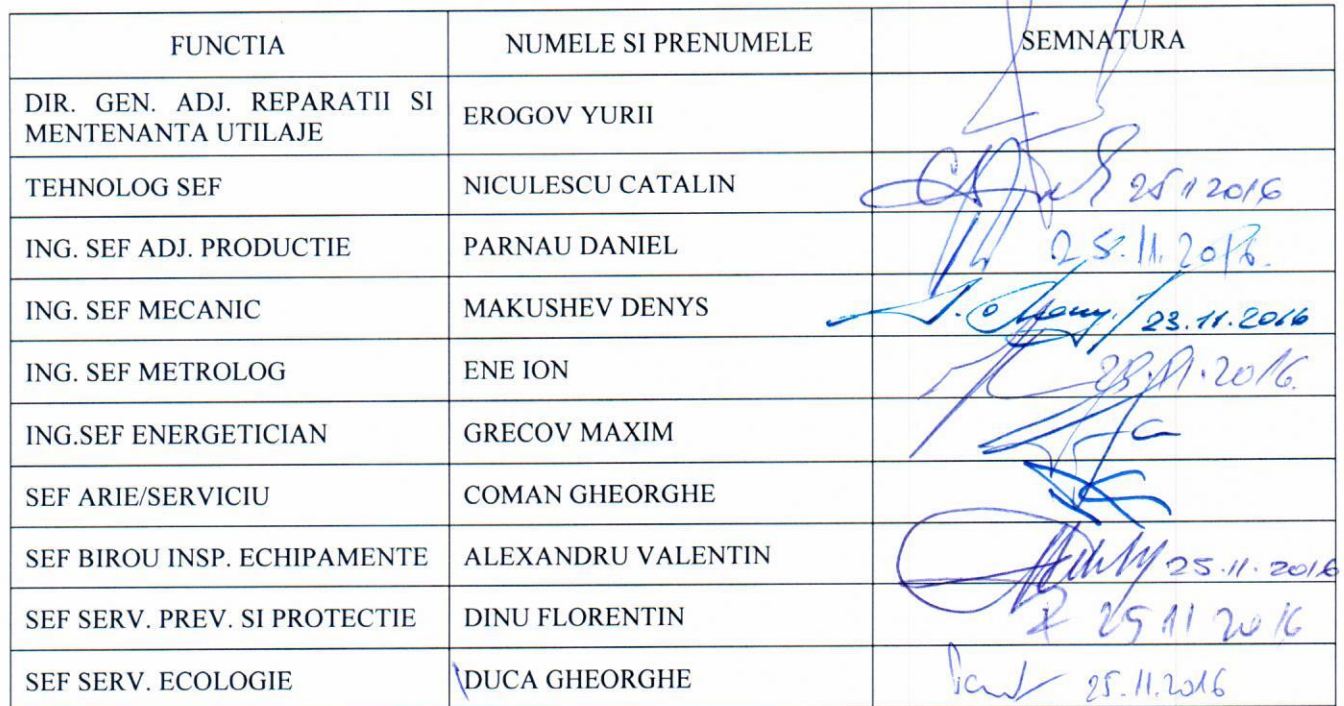 FUNCTIA NUMELE SI PRENUMELE SEMNATURA
DIR. GEN. ADJ. REPARATII SI
MENTENANTA UTILAJE
EROGOV YURII
TEHNOLOG SEF NICULESCU CATALIN 25 11 2016
ING. SEF ADJ. PRODUCTIE PARNAU DANIEL 25.11.2016.
ING. SEF MECANIC MAKUSHEV DENYS 23.11.2016
ING. SEF METROLOG ENE ION
ING.SEF ENERGETICIAN GRECOV MAXIM
SEF ARIE/SERVICIU COMAN GHEORGHE
SEF BIROU INSP. ECHIPAMENTE ALEXANDRU VALENTIN 25.11.2016
SEF SERV. PREV. SI PROTECTIE DINU FLORENTIN
SEF SERV. ECOLOGIE DUCA GHEORGHE 25.11.2016